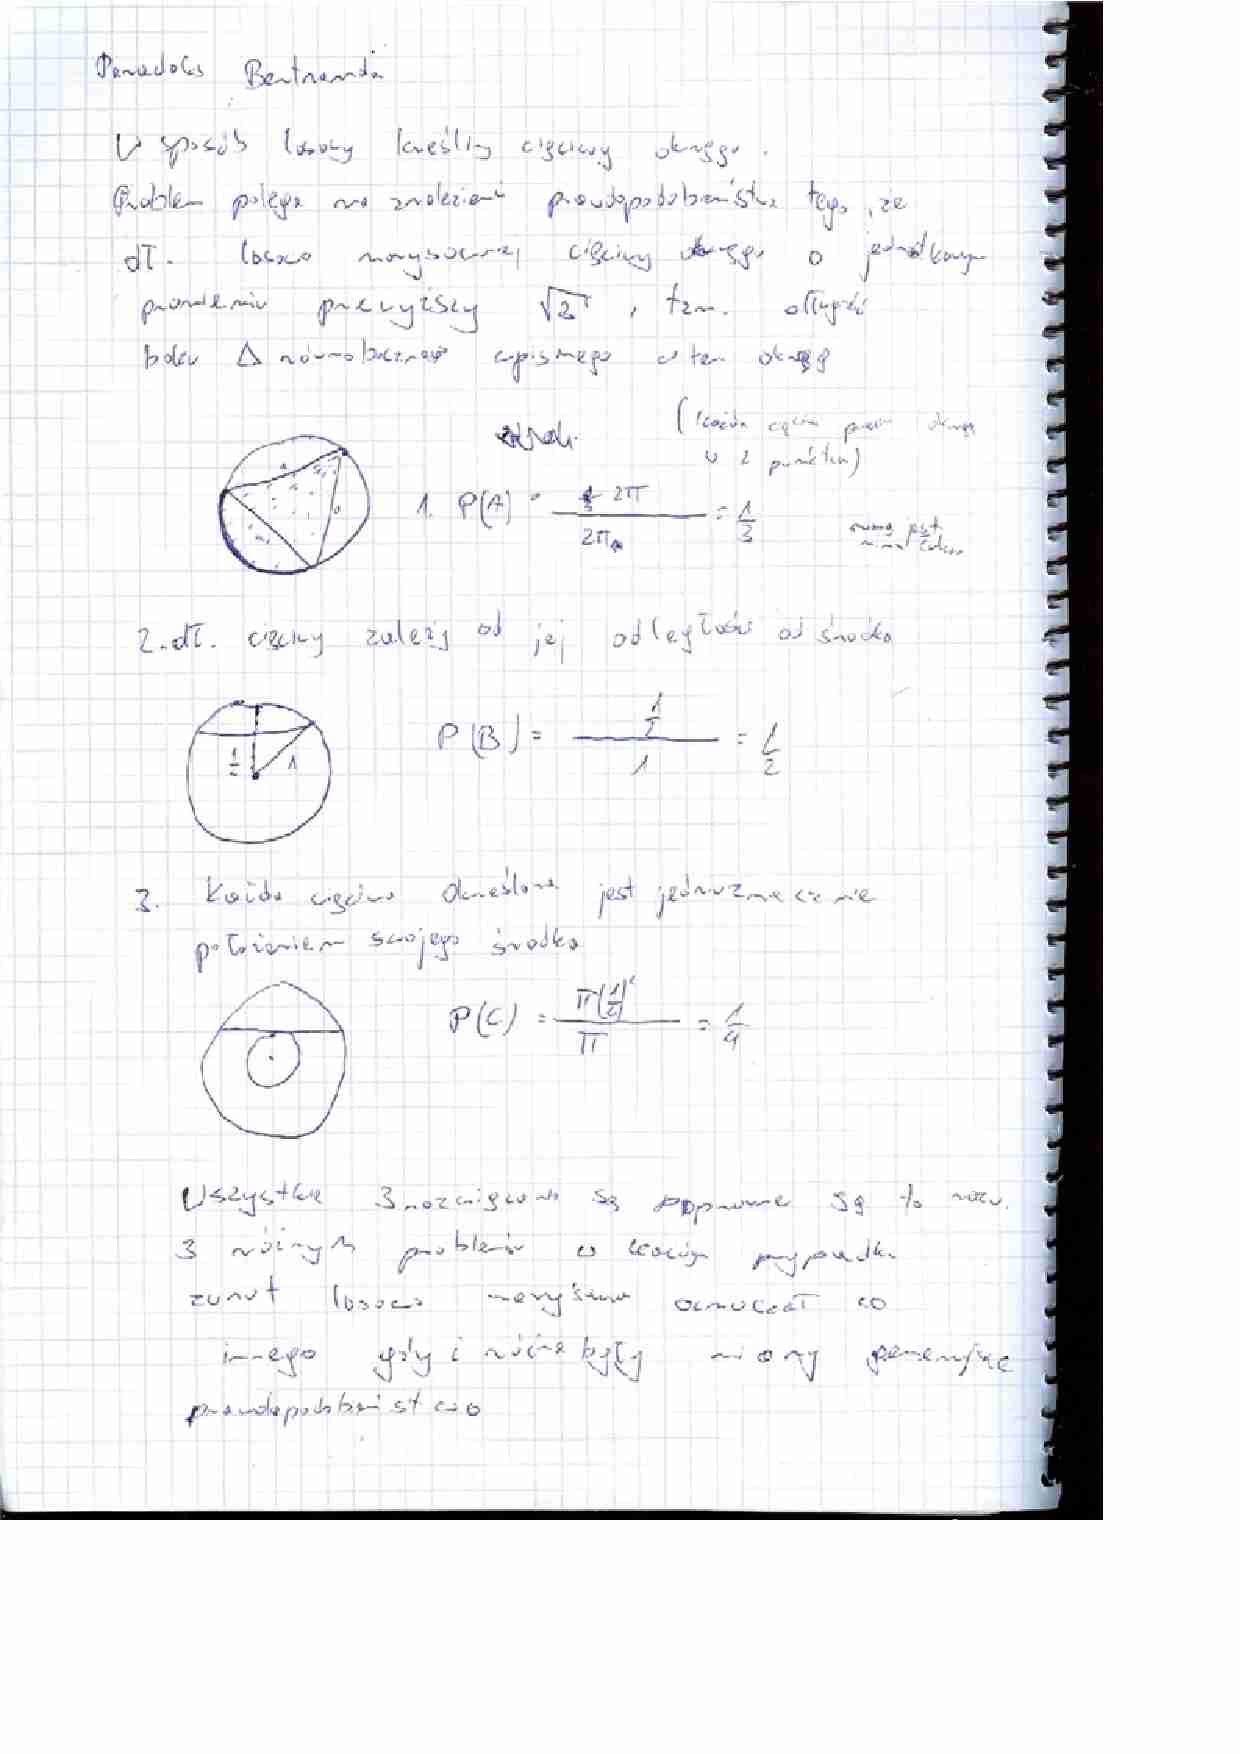 Paradoks Bertranda
W sposób losowy kreślimy cięciwy okręgu.
Problem polega na znalezieniu prawdopodobieństwa tego, że
dł. losowo narysowanej cięciwy okręgu o jednostkowym
promieniu przewyższy √2, tzn. długość
boku Δ równobocznego wpisanego w ten okrąg
(każda cięciwa przecina okrąg
w 2 punktach)
1. P(A) = 1/3 2π / 2π = 1/3
miarą jest
2. dł. cięciwy zależy od jej odległości od środka
1/2 1
P(B) = 1/2 / 1 = 1/2
3. Każda cięciwa określona jest jednoznacznie
położeniem swojego środka
P(C) = π(1/2)² / π = 1/4
Wszystkie 3 rozwiązania są poprawne są to rozw.
3 różnych problemów w każdym przypadku
zwrot losowo narysowana oznaczał co
innego gdyż różne były miary
prawdopodobieństwo